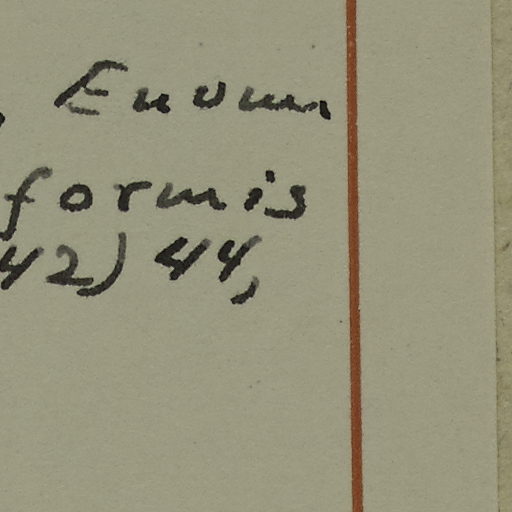 , Enum
formis
42) 44,